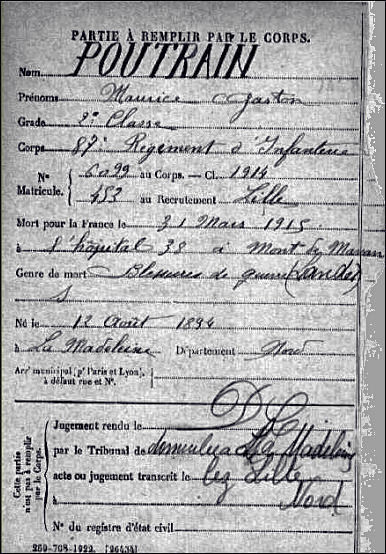 PARTIE À REMPLIR PAR LE CORPS.
Nom POUTRAIN
Prénoms Maurice Gaston
Grade 2e Classe
Corps 87e Régiment d'Infanterie
No 6099 au Corps. — Cl. 1914
Matricule. 453 au Recrutement Lille
Mort pour la France le 31 Mars 1915
à l'hôpital 38 à Mont de Marsan
Genre de mort Blessures de guerre (Landes)
Né le 12 Août 1894
à La Madeleine Département Nord
Arrt municipal (pr Paris et Lyon),
à défaut rue et No.
Cette partie
n'est pas à remplir
par le Corps.
Jugement rendu le
par le Tribunal de La Madeleine
acte ou jugement transcrit le lez Lille
à Nord
No du registre d'état civil
260-708-1922. [26434]